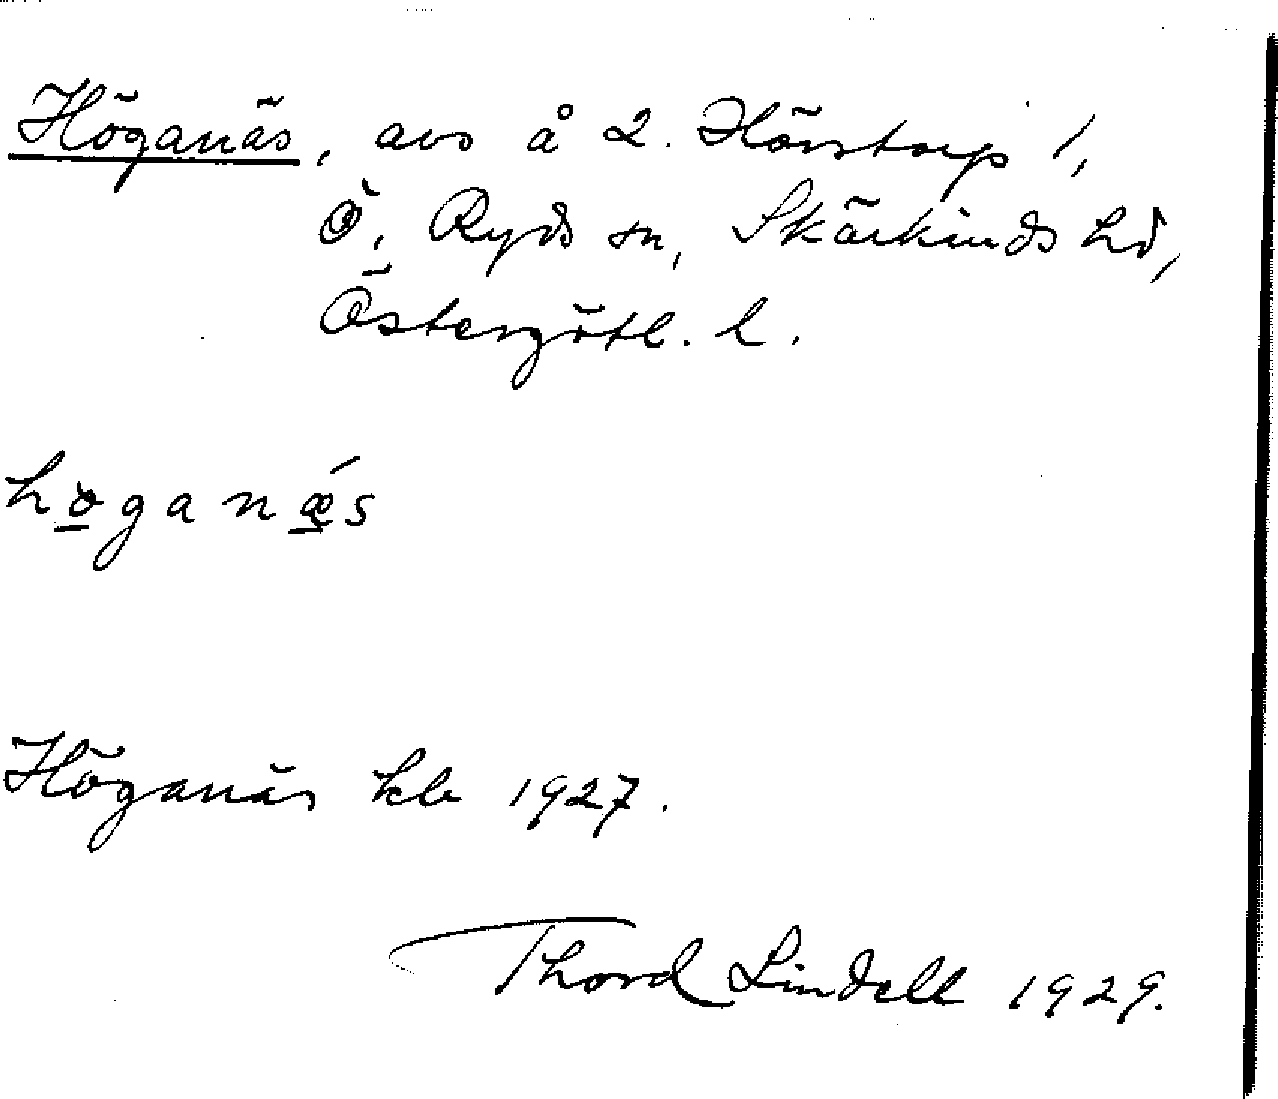 Höganäs, avs å L. Hörstorp 1,
Ö. Ryds sn, Skärkinds hd,
Östergötl. l.
höganǽs
Höganäs kb 1927.
Thord Lindell 1929.